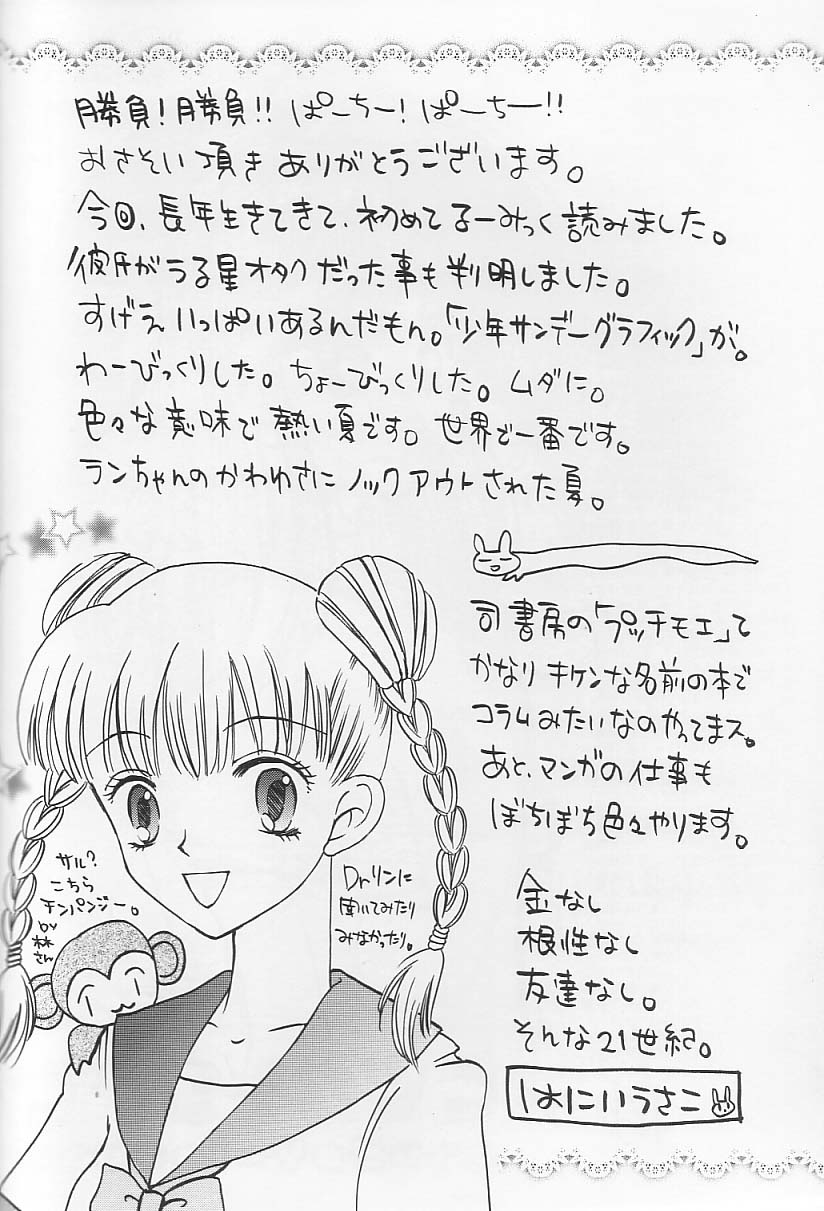 勝負!勝負!!ぱーちー!ぱーちー!!
おさそい頂きありがとうございます。
今回、長年生きてきて、初めてるーみっく読みました。
彼氏がうる星オタクだった事も判明しました。
すげえいっぱいあるんだもん。「少年サンデーグラフィック」が。
わーびっくりした。ちょーびっくりした。ムダに。
色々な意味で熱い夏です。世界で一番です。
ランちゃんのかわゆさにノックアウトされた夏。
司書房の「プッチモエ」て
かなりキケンな名前の本で
コラムみたいなのやってまス。
あと、マンガの仕事も
ぼちぼち色々やります。
金なし
根性なし
友達なし。
そんな21世紀。
はにいうさこ
Dr.リンに
聞いてみたり
みなかったり。
サル?
こちら
チンパンジー。
by
林さん